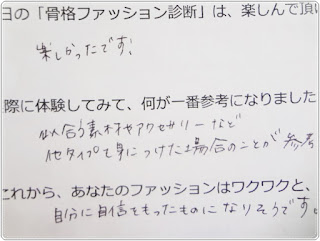 日の「骨格ファッション診断」は、楽しんで頂け
楽しかったです!
際に体験してみて、何が一番参考になりました
似合う素材やアクセサリーなど
他タイプで身につけた場合のことが参考
これから、あなたのファッションはワクワクと、
自分に自信をもったものになりそうです。